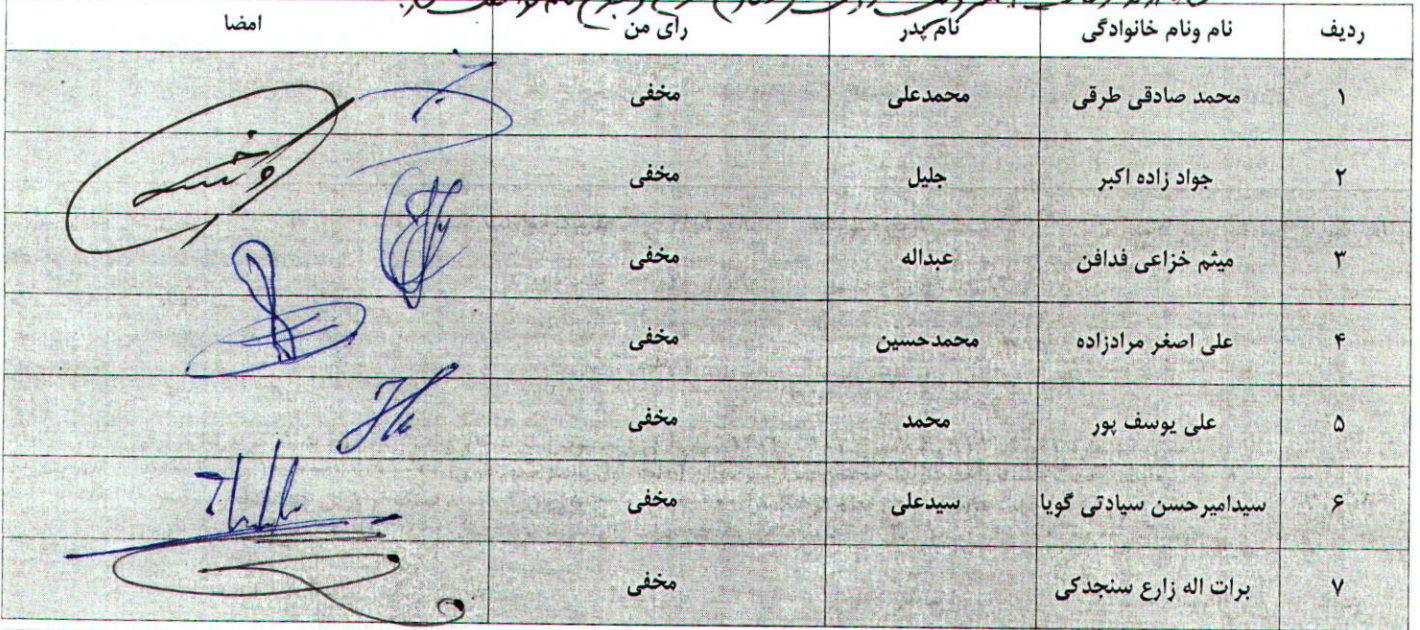 ردیف نام ونام خانوادگی نام پدر رای من امضا
۱ محمد صادقی طرقی محمدعلی مخفی
۲ جواد زاده اکبر جلیل مخفی
۳ میثم خزاعی فدافن عبداله مخفی
۴ علی اصغر مرادزاده محمدحسین مخفی
۵ علی یوسف پور محمد مخفی
۶ سیدامیرحسن سیادتی گویا سیدعلی مخفی
۷ برات اله زارع سنجدکی مخفی